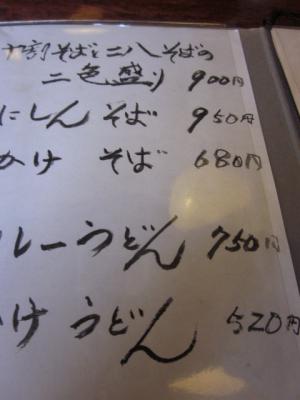 十割そばと二八そばの
二色盛り 900円
にしん そば 950円
かけ そば 680円
レーうどん 750円
け うどん 520円